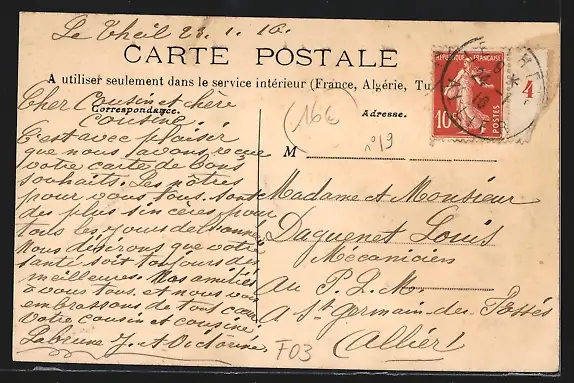 Le Theil 23. 1. 16.
CARTE POSTALE
A utiliser seulement dans le service intérieur (France, Algérie, Tu
Correspondance.
Adresse.
Cher Cousin et chère
Cousine.
C'est avec plaisir
que nous avons reçue
votre carte de bons
souhaits. Les nôtres
pour vous tous. sont
des plus sincères pour
tous les jours de l'année
Nous désirons que votre
santé soit toujours des
meilleures. Mes amitiés
à vous tous. et nous vous
embrassons de tout cœur
Votre cousin et cousine
Labrune J. et Victorine
(16e)
n° 19
M
Madame et Monsieur
Daguenet Louis
Mécanicien
au P. L. M.
à St Germain-des-Fossés
(Allier)
F03
REPUBLIQUE FRANÇAISE
10
POSTES
4